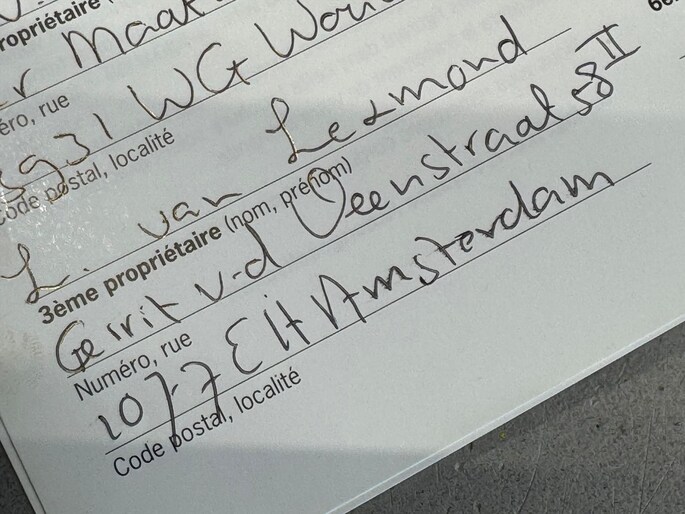 propriétaire
r Maak
éro, rue
3931 WG Wou
Code postal, localité
L. van Lexmond
3ème propriétaire (nom, prénom)
Gerrit v-d Veenstraat 58 II
Numéro, rue
1077 EH Amsterdam
Code postal, localité